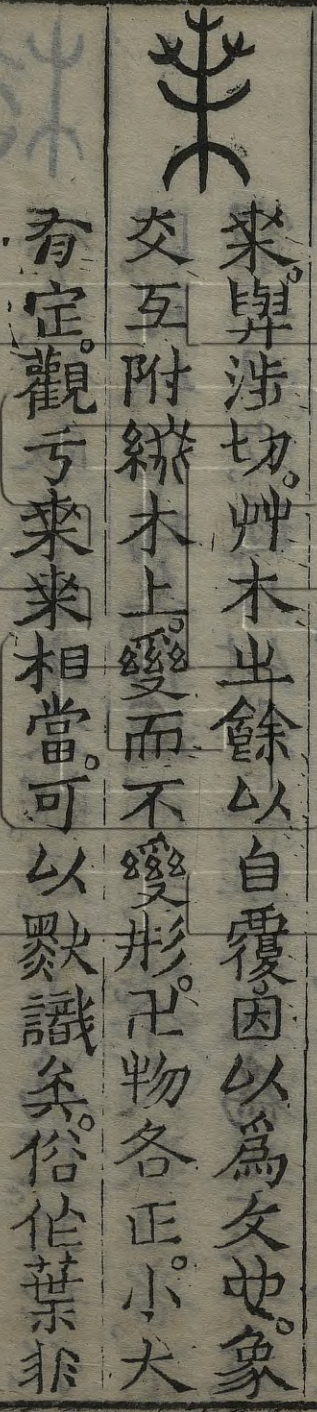 枼。弽涉切。艸木㞢餘以自覆。因以爲文也。象
交互附綴木上。變而不變形。卍物各正。小大
有定。觀亏枼枼相當。可以默識矣。俗作葉非